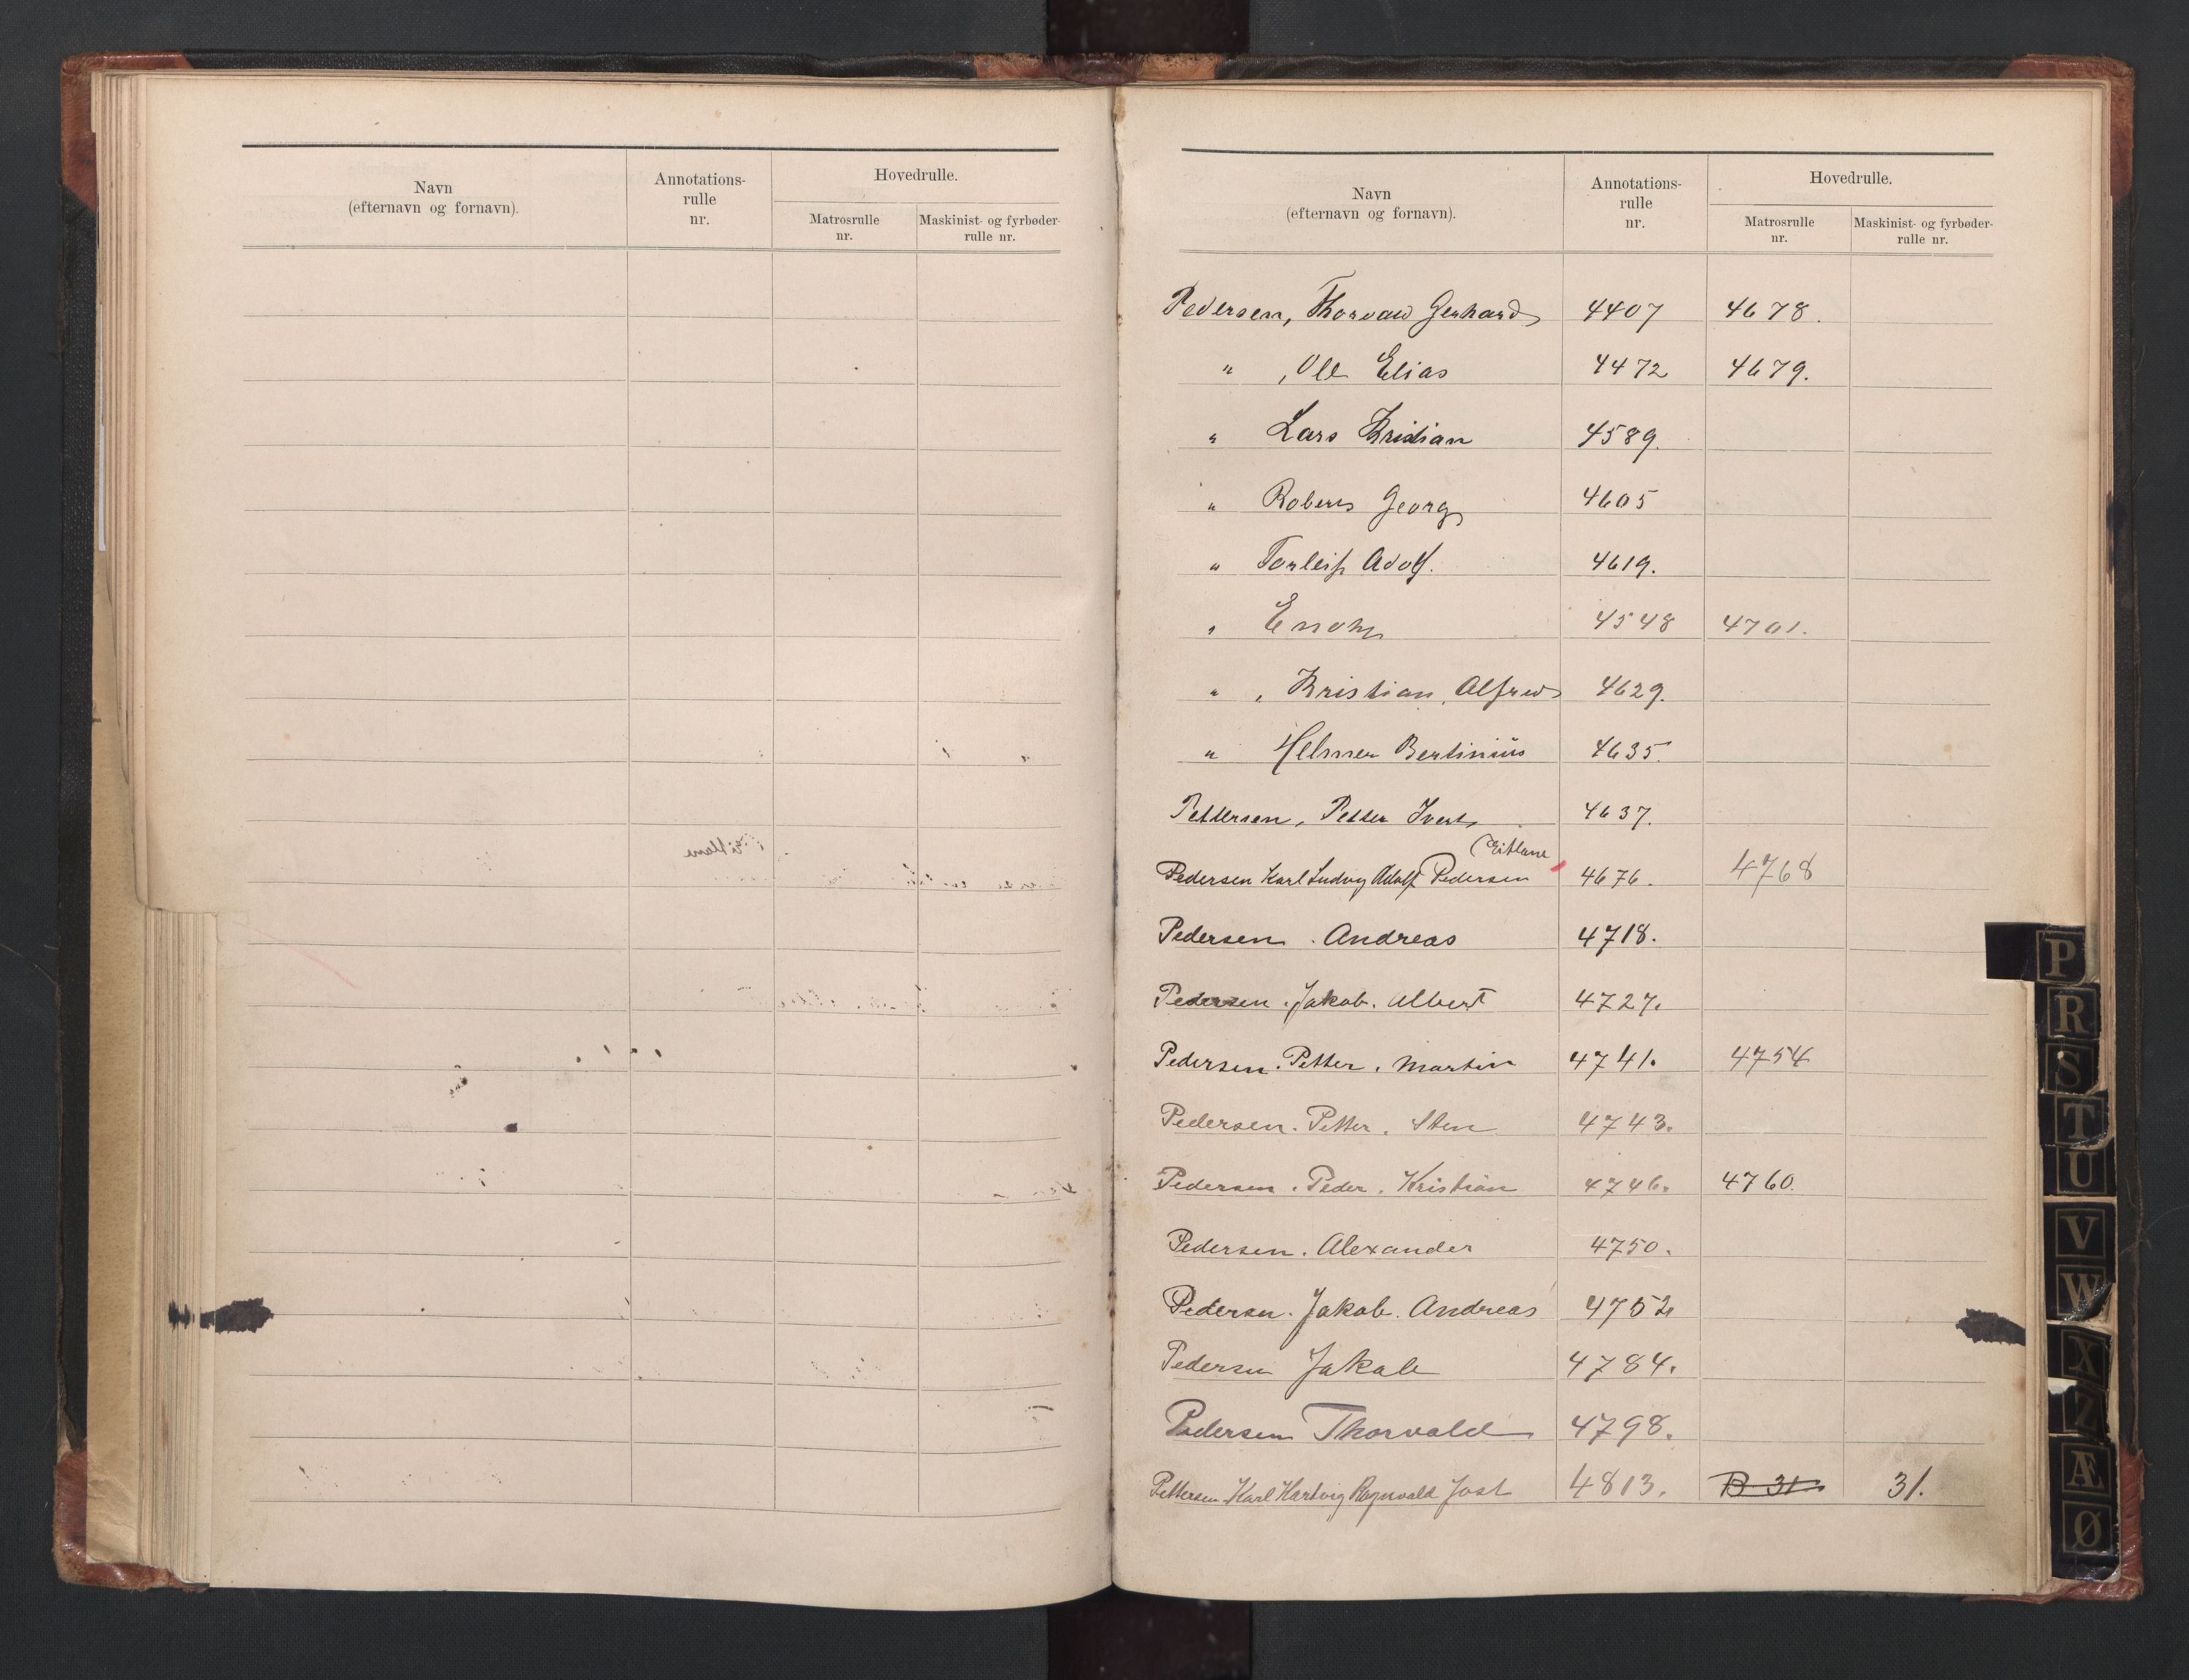 Navn
(efternavn og fornavn).
Annotations-
rulle
nr.
Hovedrulle.
Matrosrulle
nr.
Maskinist- og fyrbøder-
rulle nr.
Navn
(efternavn og fornavn).
Annotations-
rulle
nr.
Hovedrulle.
Matrosrulle
nr.
Maskinist- og fyrbøder-
rulle nr.
Pedersen, Thorvald Gerhard 4407 4678.
" , Ole Elias 4472 4679.
" Lars Kristian 4589.
" Robert Georg 4605
" Torleif Adolf. 4619.
" Enok 4548 4701.
" , Kristian, Alfred 4629.
" Helmer Bertinius 4635.
Pettersen, Petter Ivert 4637.
Pedersen Karl Ludvig Adolf Pedersen 4676. 4768
Pedersen . Andreas 4718.
Pedersen . Jakob. Albert 4727.
Pedersen. Petter. Martin 4741. 4754
Pedersen. Petter. Sten 4743.
Pedersen. Peder. Kristian 4746. 4760.
Pedersen. Alexander 4750.
Pedersen. Jakob. Andreas 4752
Pedersen Jakob 4784.
Pedersen Thorvald 4798.
Pettersen Karl Hartvig Ragnvald Jost 4813. B 31 31.
P
R
S
T
U
V
W
X
Z
Æ
Ø